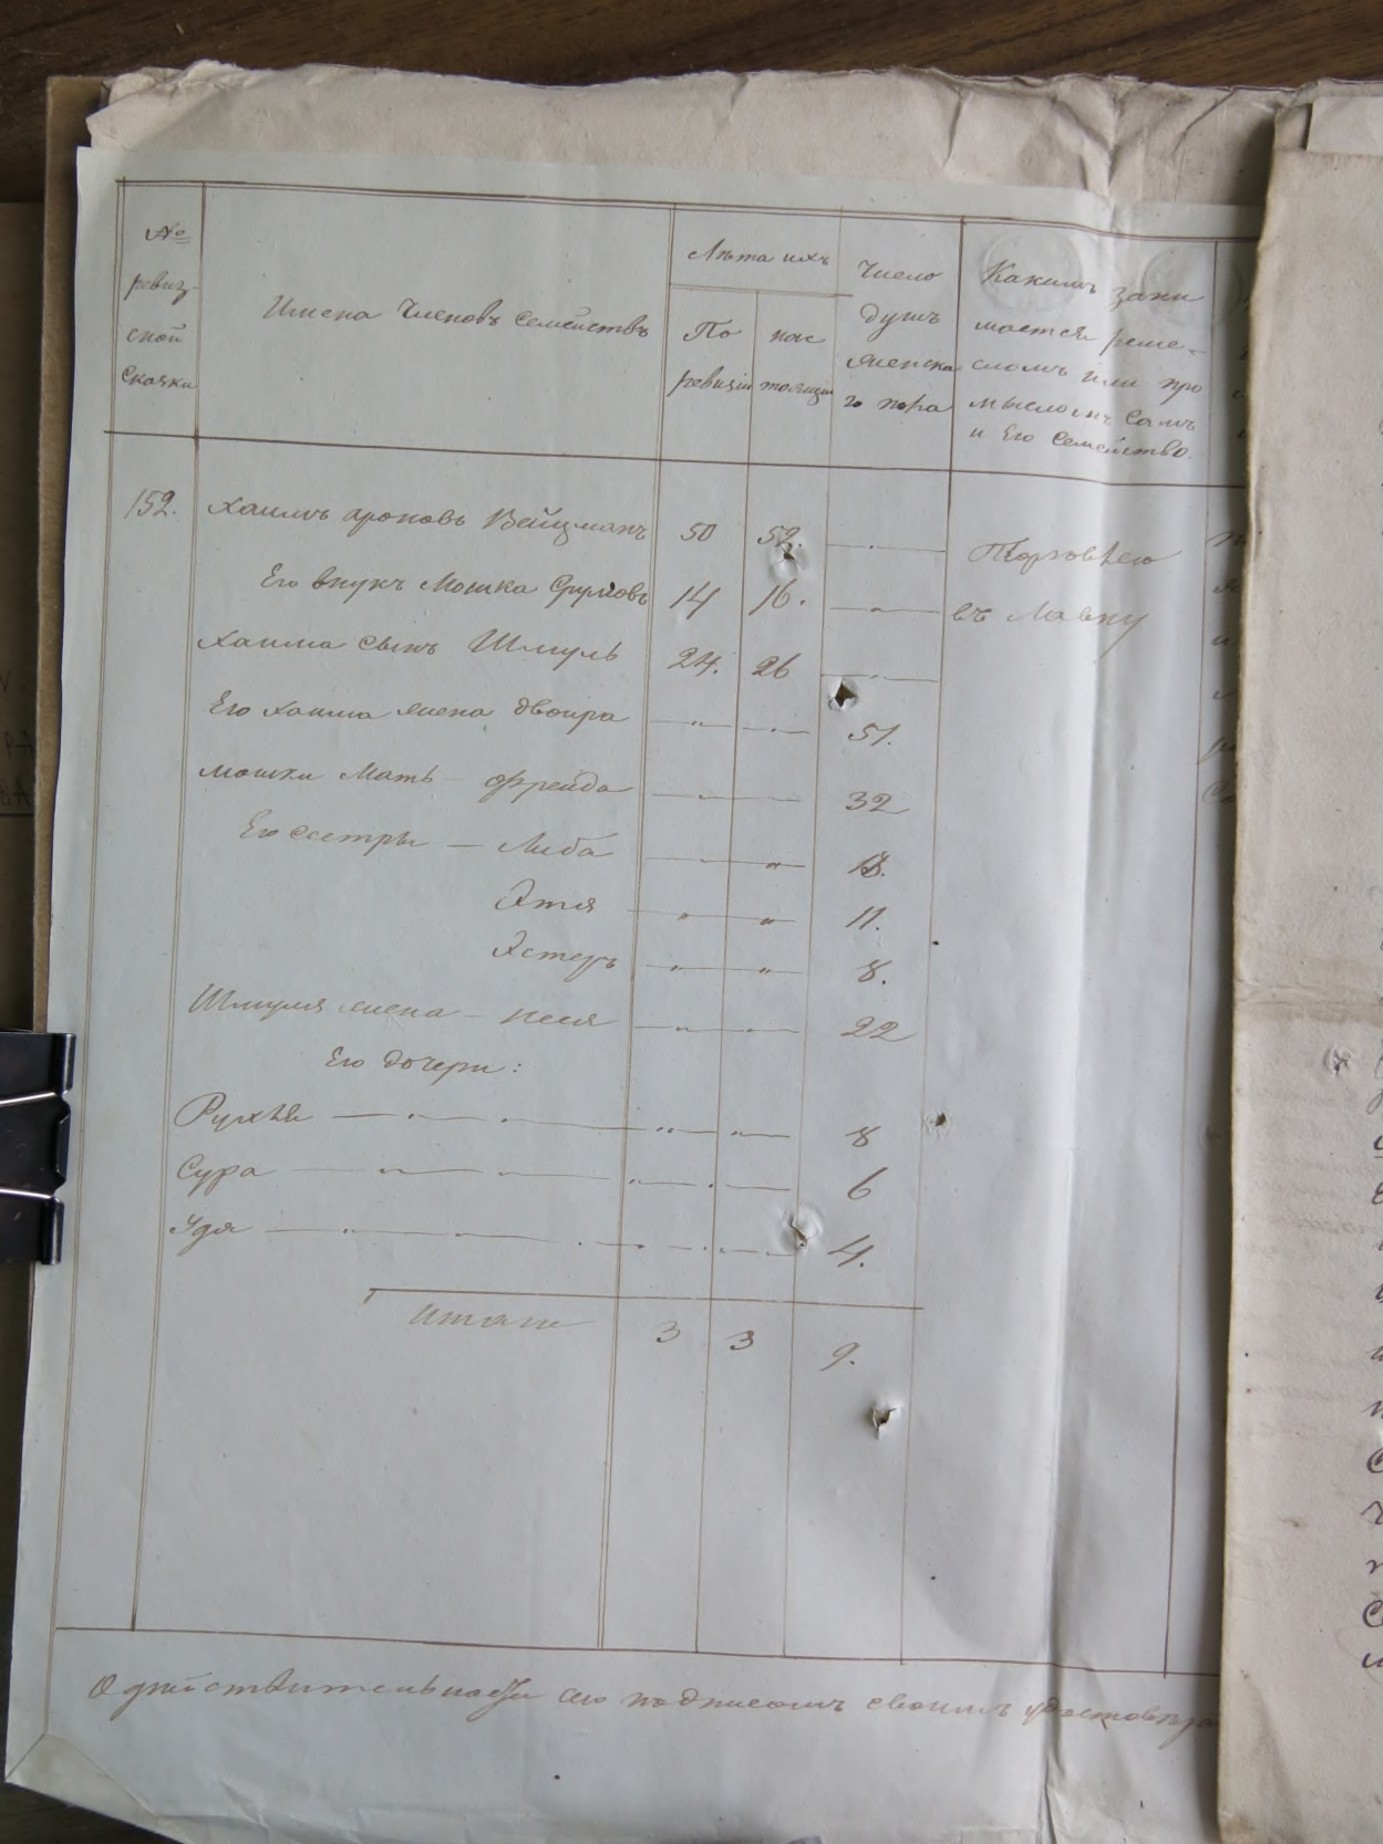 № ревиз-ской Сказки
Имена Членовъ Семействъ
Лѣта ихъ
По ревизіи
нас тоящіи
Число душъ женска го пола
Какимъ зани
мается реме-
сломъ или про
мысломъ Самъ
и Его Семейство.
152. Хаимъ Ароновъ Вейцманъ 50 52. Торговлею
Его внукъ Мошка Сруловъ 14 16. въ Лавку
Хаима сынъ Шмуль 24. 26
Его Хаима жена Двоира 51.
Мошки Мать - Фрейда 32
Его сестры - Либа
Этля 11.
Эстеръ 8.
Шмуля жена - Неся 22
Его дочери:
Рухля 8
Сура 6
Удя 4.
Итого 3 3 9.
О действительности сего подписомъ своимъ